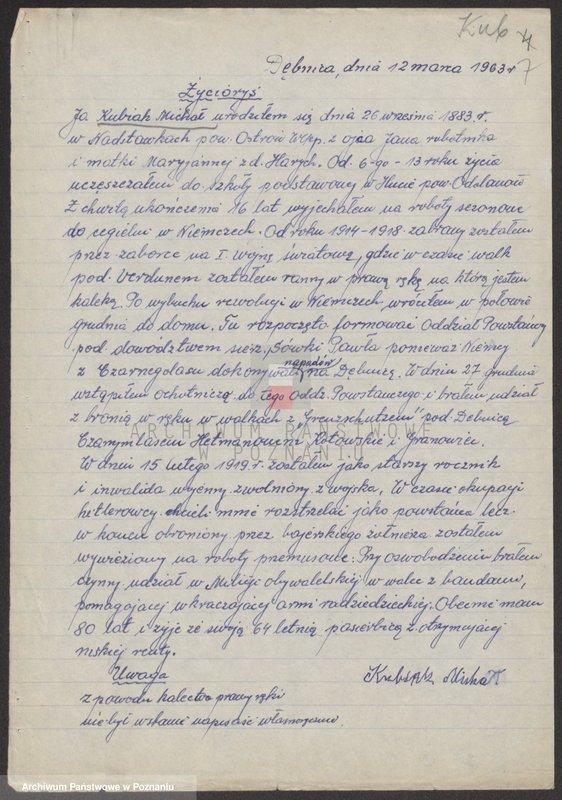 Kub 4
7
Dębnica, dnia 12 marca 1963 r
Życiórys
Ja Kubiak Michał urodziłem się dnia 26 wresnia 1883.r.
w Nadstawkach pow. Ostrów Wlkp. z ojca Jana robotnika
i matki Maryjannej z d. Harych. Od 6-go - 13 roku życia
uczęszczałem do szkoły podstawowej w Hucie pow. Odolanów
Z chwilą ukończenia 16 lat wyjechałem na roboty sezonowe
do cegielni w Niemczech. Od roku 1914-1918 zabrany zostałem
przez zaborcę na I. wojnę światową, gdzie w czasie walk
pod. Verdunem zostałem ranny w prawą rękę na którą jestem
kaleką. Po wybuchu rewolucji w Niemczech, wróciłem w połowie
grudnia do domu. Tu rozpoczęto formować Oddział Powstańczy
pod. dowództwem sierż. Sówki Pawła ponieważ Niemcy
z Czarnegolasu dokonywali napadów na Dębnicę. W dniu 27 grudnia
wstąpiłem ochotniczo do tego Oddz. Powstańczego i brałem udział
z bronią w ręku w walkach z „Grenzschutzem" pod. Dębnicą
Czarnymlasem Hetmanowem Kotowskie i Granowiec.
W dniu 15 lutego 1919.r. zostałem jako starszy rocznik
i inwalida wojenny zwolniony z wojska. W czasie okupacji
hitlerowcy chcieli mnie rozstrzelać jako powstańca lecz
w końcu obroniony przez bajerskiego żołnieża zostałem
wywieziony na roboty przemusowe. Przy oswobodzeniu brałem
czynny udział w Milicji obywatelskiej w walce z bandami,
pomagającej wkraczającej armi radziedzckiej. Obecnie mam
80 lat i żyje ze swoją 64 letnią pasierbicą z otrzymującej
niskiej renty.
Uwaga
Kubiak Michał
z powodu kalectwa prawej ręki
nie był w stanie napisać własnoręcznie.
ARCHIWUM PAŃSTWOWE
W POZNANIU
Archiwum Państwowe w Poznaniu